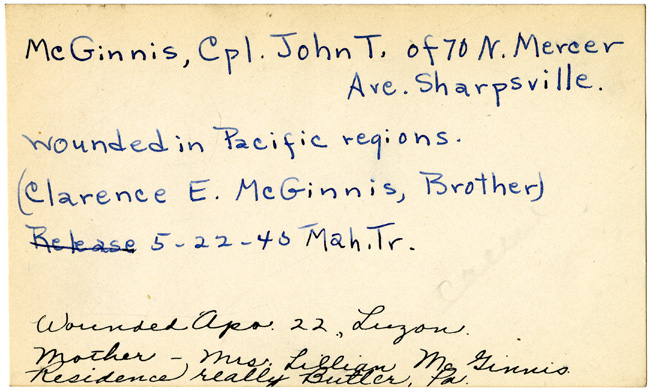 McGinnis, Cpl. John T. of 70 N. Mercer
Ave. Sharpsville.
Wounded in Pacific regions.
(Clarence E. McGinnis, Brother)
Release 5-22-45 Mah. Tr.
Wounded Apr. 22, Luzon.
Mother - Mrs. Lillian McGinnis
Residence really Butler, Pa.